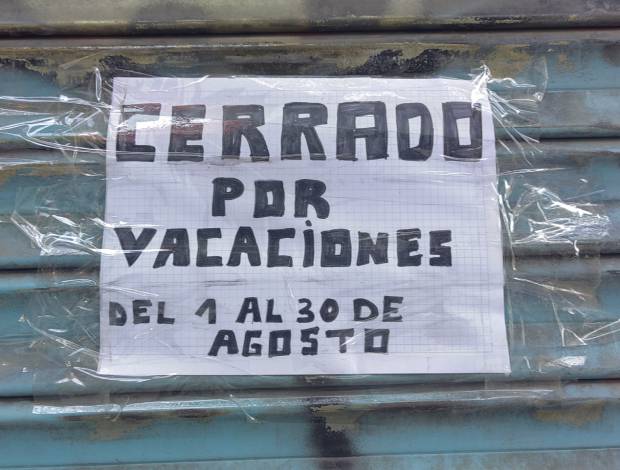 CERRADO
POR
VACACIONES
DEL 1 AL 30 DE
AGOSTO